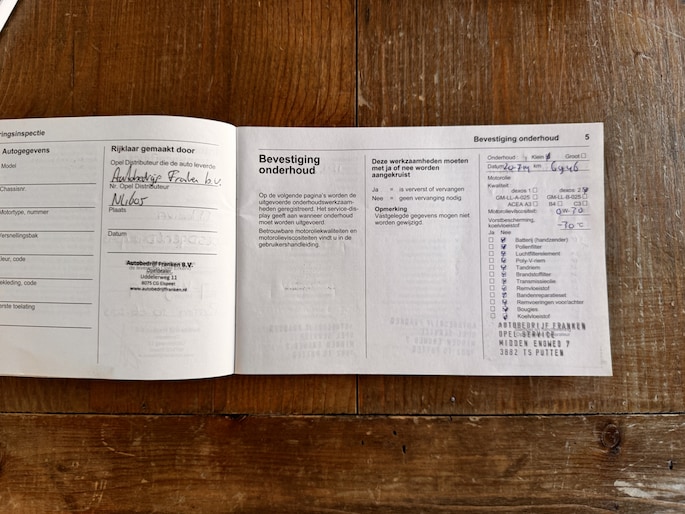 ringsinspectie
Autogegevens
Model
Chassisnr.
Motortype, nummer
Versnellingsbak
Kleur, code
Bekleding, code
Eerste toelating
Rijklaar gemaakt door
Opel Distributeur die de auto leverde
Autobedrijf Franken b.v.
Nr. Opel Distributeur
NL605
Plaats
Datum
Autobedrijf Franken B.V.
Uddelerweg 11
8075 CG Elspeet
www.autobedrijffranken.nl
Bevestiging onderhoud 5
Bevestiging
onderhoud
Op de volgende pagina's worden de
uitgevoerde onderhoudswerkzaam-
heden geregistreerd. Het service-dis-
play geeft aan wanneer onderhoud
moet worden uitgevoerd.
Betrouwbare motoroliekwaliteiten en
motorolieviscositeiten vindt u in de
gebruikershandleiding.
Deze werkzaamheden moeten
met ja of nee worden
aangekruist
Ja = is ververst of vervangen
Nee = geen vervanging nodig
Opmerking
Vastgelegde gegevens mogen niet
worden gewijzigd.
Onderhoud: Klein Groot
Datum km
Motorolie:
Kwaliteit
dexos 1 dexos 2
GM-LL-A-025 GM-LL-B-025
ACEA A3 B4 C3
Motorolieviscositeit:
Vorstbescherming,
koelvloeistof -30 °C
Ja Nee
Batterij (handzender)
Pollenfilter
Luchtfilterelement
Poly-V-riem
Tandriem
Brandstoffilter
Transmissieolie
Remvloeistof
Bandenreparatieset
Remvoeringen voor/achter
Bougies
Koelvloeistof
AUTOBEDRIJF FRANKEN
OPEL SERVICE
MIDDEN ENGWEG 7
3882 TS PUTTEN